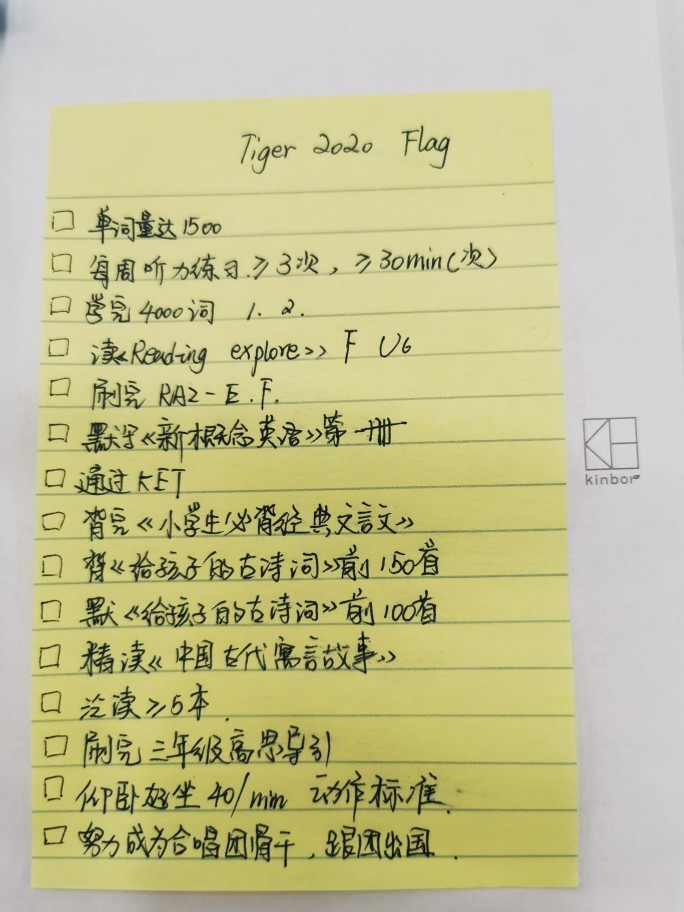 Tiger 2020 Flag
单词量达1500
每周听力练习≥3次，≥30min(次)
学完4000词 1. 2.
读《Reading explore》 F U6
刷完 RAZ-E.F.
默写《新概念英语》第一册
通过KET
背完《小学生必背经典文言文》
背《给孩子的古诗词》前150首
默《给孩子的古诗词》前100首
精读《中国古代寓言故事》
泛读≥5本.
刷完三年级高思导引
仰卧起坐40/min 动作标准.
努力成为合唱团骨干，跟团出国.
kinbor